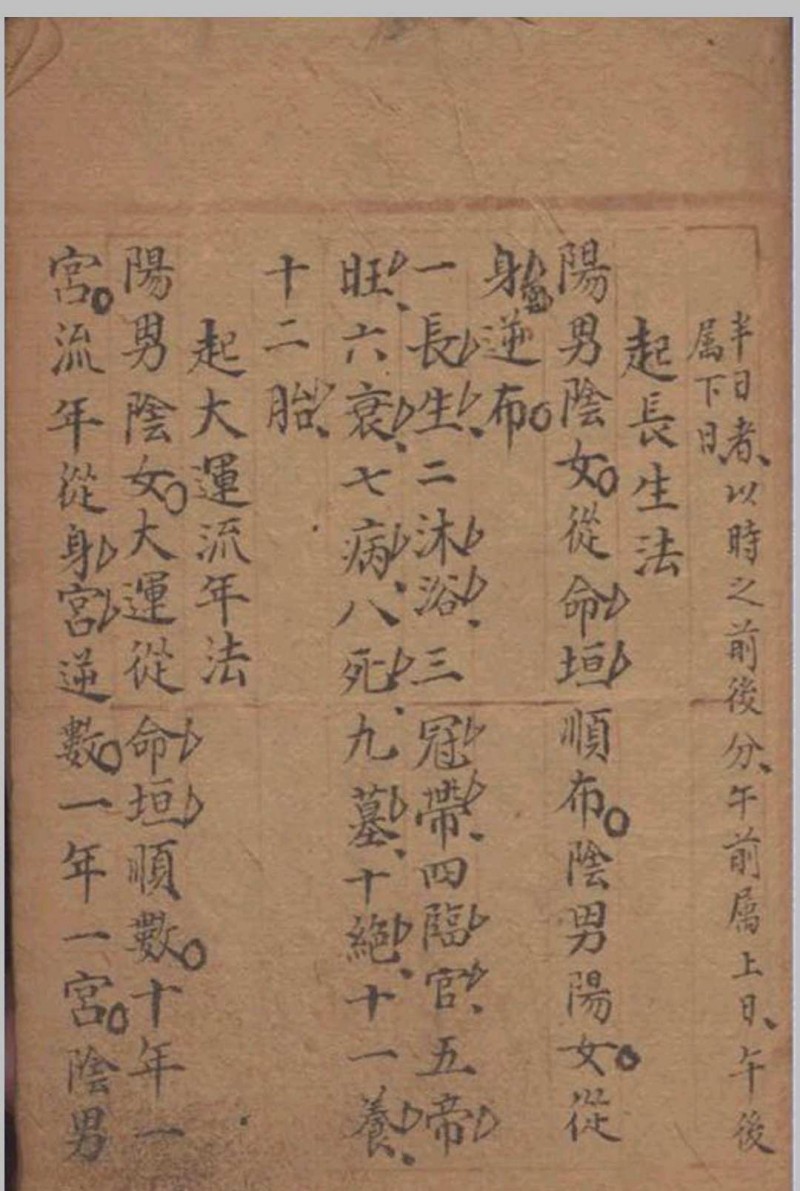 半日者、以時之前後分、午前属上日、午後
属下日、
起長生法
陽男陰女。從命垣順布。陰男陽女。從
身逆布。
一長生、二沐浴、三冠帶、四臨官、五帝
旺、六衰、七病、八死、九墓、十絕、十一養、
十二胎、
起大運流年法
陽男陰女。大運從命垣順數。十年一
宮。流年從身宮逆數。一年一宮。陰男